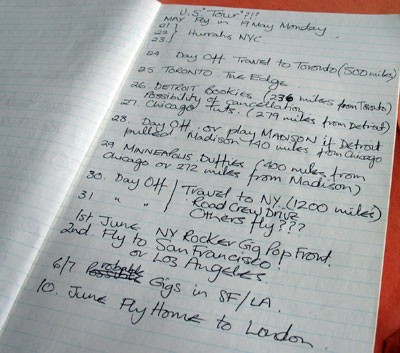 U.S "Tour"?!!
MAY Fly in 19 May Monday
21
22 } Hurrahs NYC
23
24 Day Off Travel to Toronto (500 miles)
25 TORONTO The Edge
26. DETROIT Bookies (236 miles from Toronto)
Possibility of cancellation
27. Chicago Tuts. (279 miles from Detroit)
28. Day Off or play MADISON if Detroit
pulled. Madison 140 miles from Chicago
29 MINNEAPOLIS Duffies (400 miles from
Chicago or 272 miles from Madison)
30. Day Off / Travel to NY (1200 miles)
31 " " / Road Crew Drive
Others fly???
1st June NY Rocker Gig Pop Front.
2nd Fly to San Francisco!
or Los Angeles
6/7 Probable Gigs in SF/LA.
10. June Fly Home to London